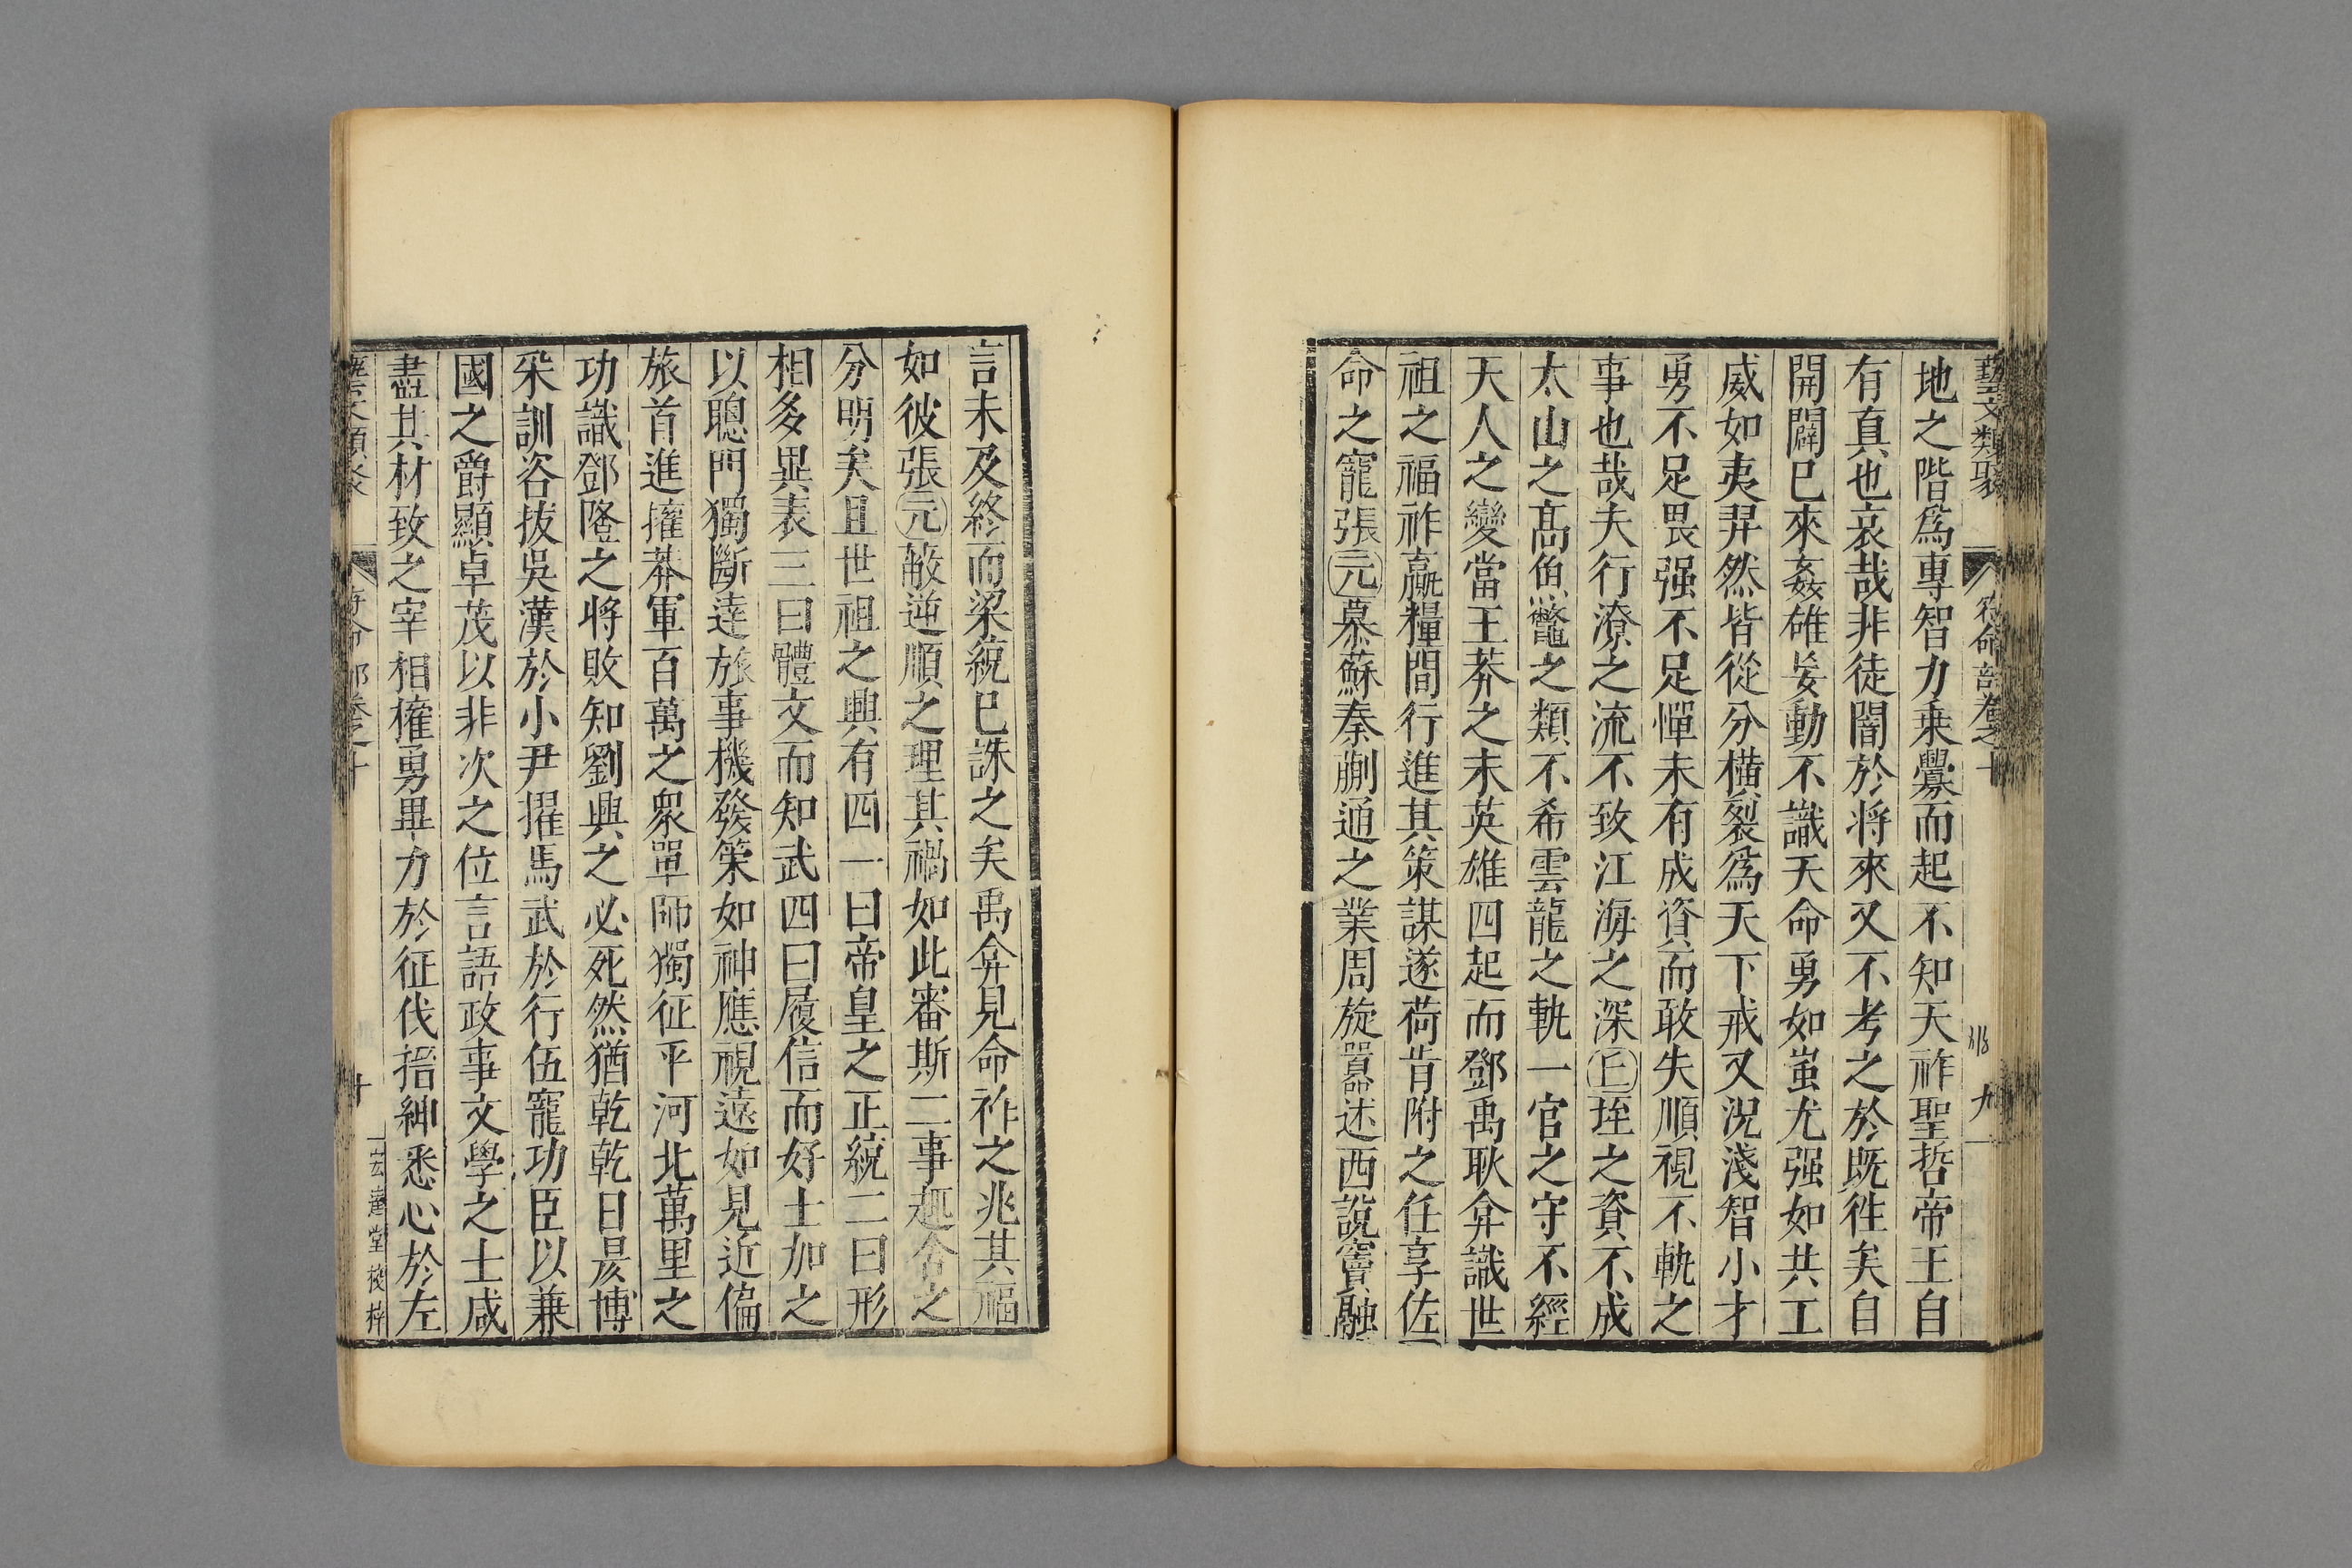 藝文類聚 符命部卷之十 九
地之階爲專智力乗釁而起不知天祚聖哲帝王自
有真也哀哉非徒闇於将來又不考之於既徃矣自
開闢已來姦碓妄動不識天命勇如蚩尤强如共工
威如夷羿然皆從分横裂爲天下戒又况淺智小才
勇不足畏强不足憚未有成資而敢失順視不軌之
事也哉夫行潦之流不致江海之深丘垤之資不成
太山之髙魚鼈之類不希雲龍之軌一官之守不經
天人之變當王莽之末英雄四起而鄧禹耿弇識世
祖之福祚羸糧間行進其策謀遂荷肯附之任享佐
命之寵張元慕蘇秦蒯通之業周旋囂述西說竇融
言未及終而梁統已誅之矣禹弇見命祚之兆其福
如彼張元蔽逆順之理其禍如此審斯二事趣舍之
分明矣且世祖之興有四一曰帝皇之正統二曰形
相多異表三曰體文而知武四曰履信而好士加之
以聰門獨斷達於事機發策如神應視遠如見近偏
旅首進摧莽軍百萬之衆單師獨征平河北萬里之
功識鄧隆之将敗知劉興之必死然猶乾乾日昃博
采訓咨拔吳漢於小尹擢馬武於行伍寵功臣以兼
國之爵顯卓茂以非次之位言語政事文學之士咸
盡其材致之宰相權勇畢力於征伐搢紳悉心於左
藝文類聚 符命部卷之十 十 宏達堂校梓